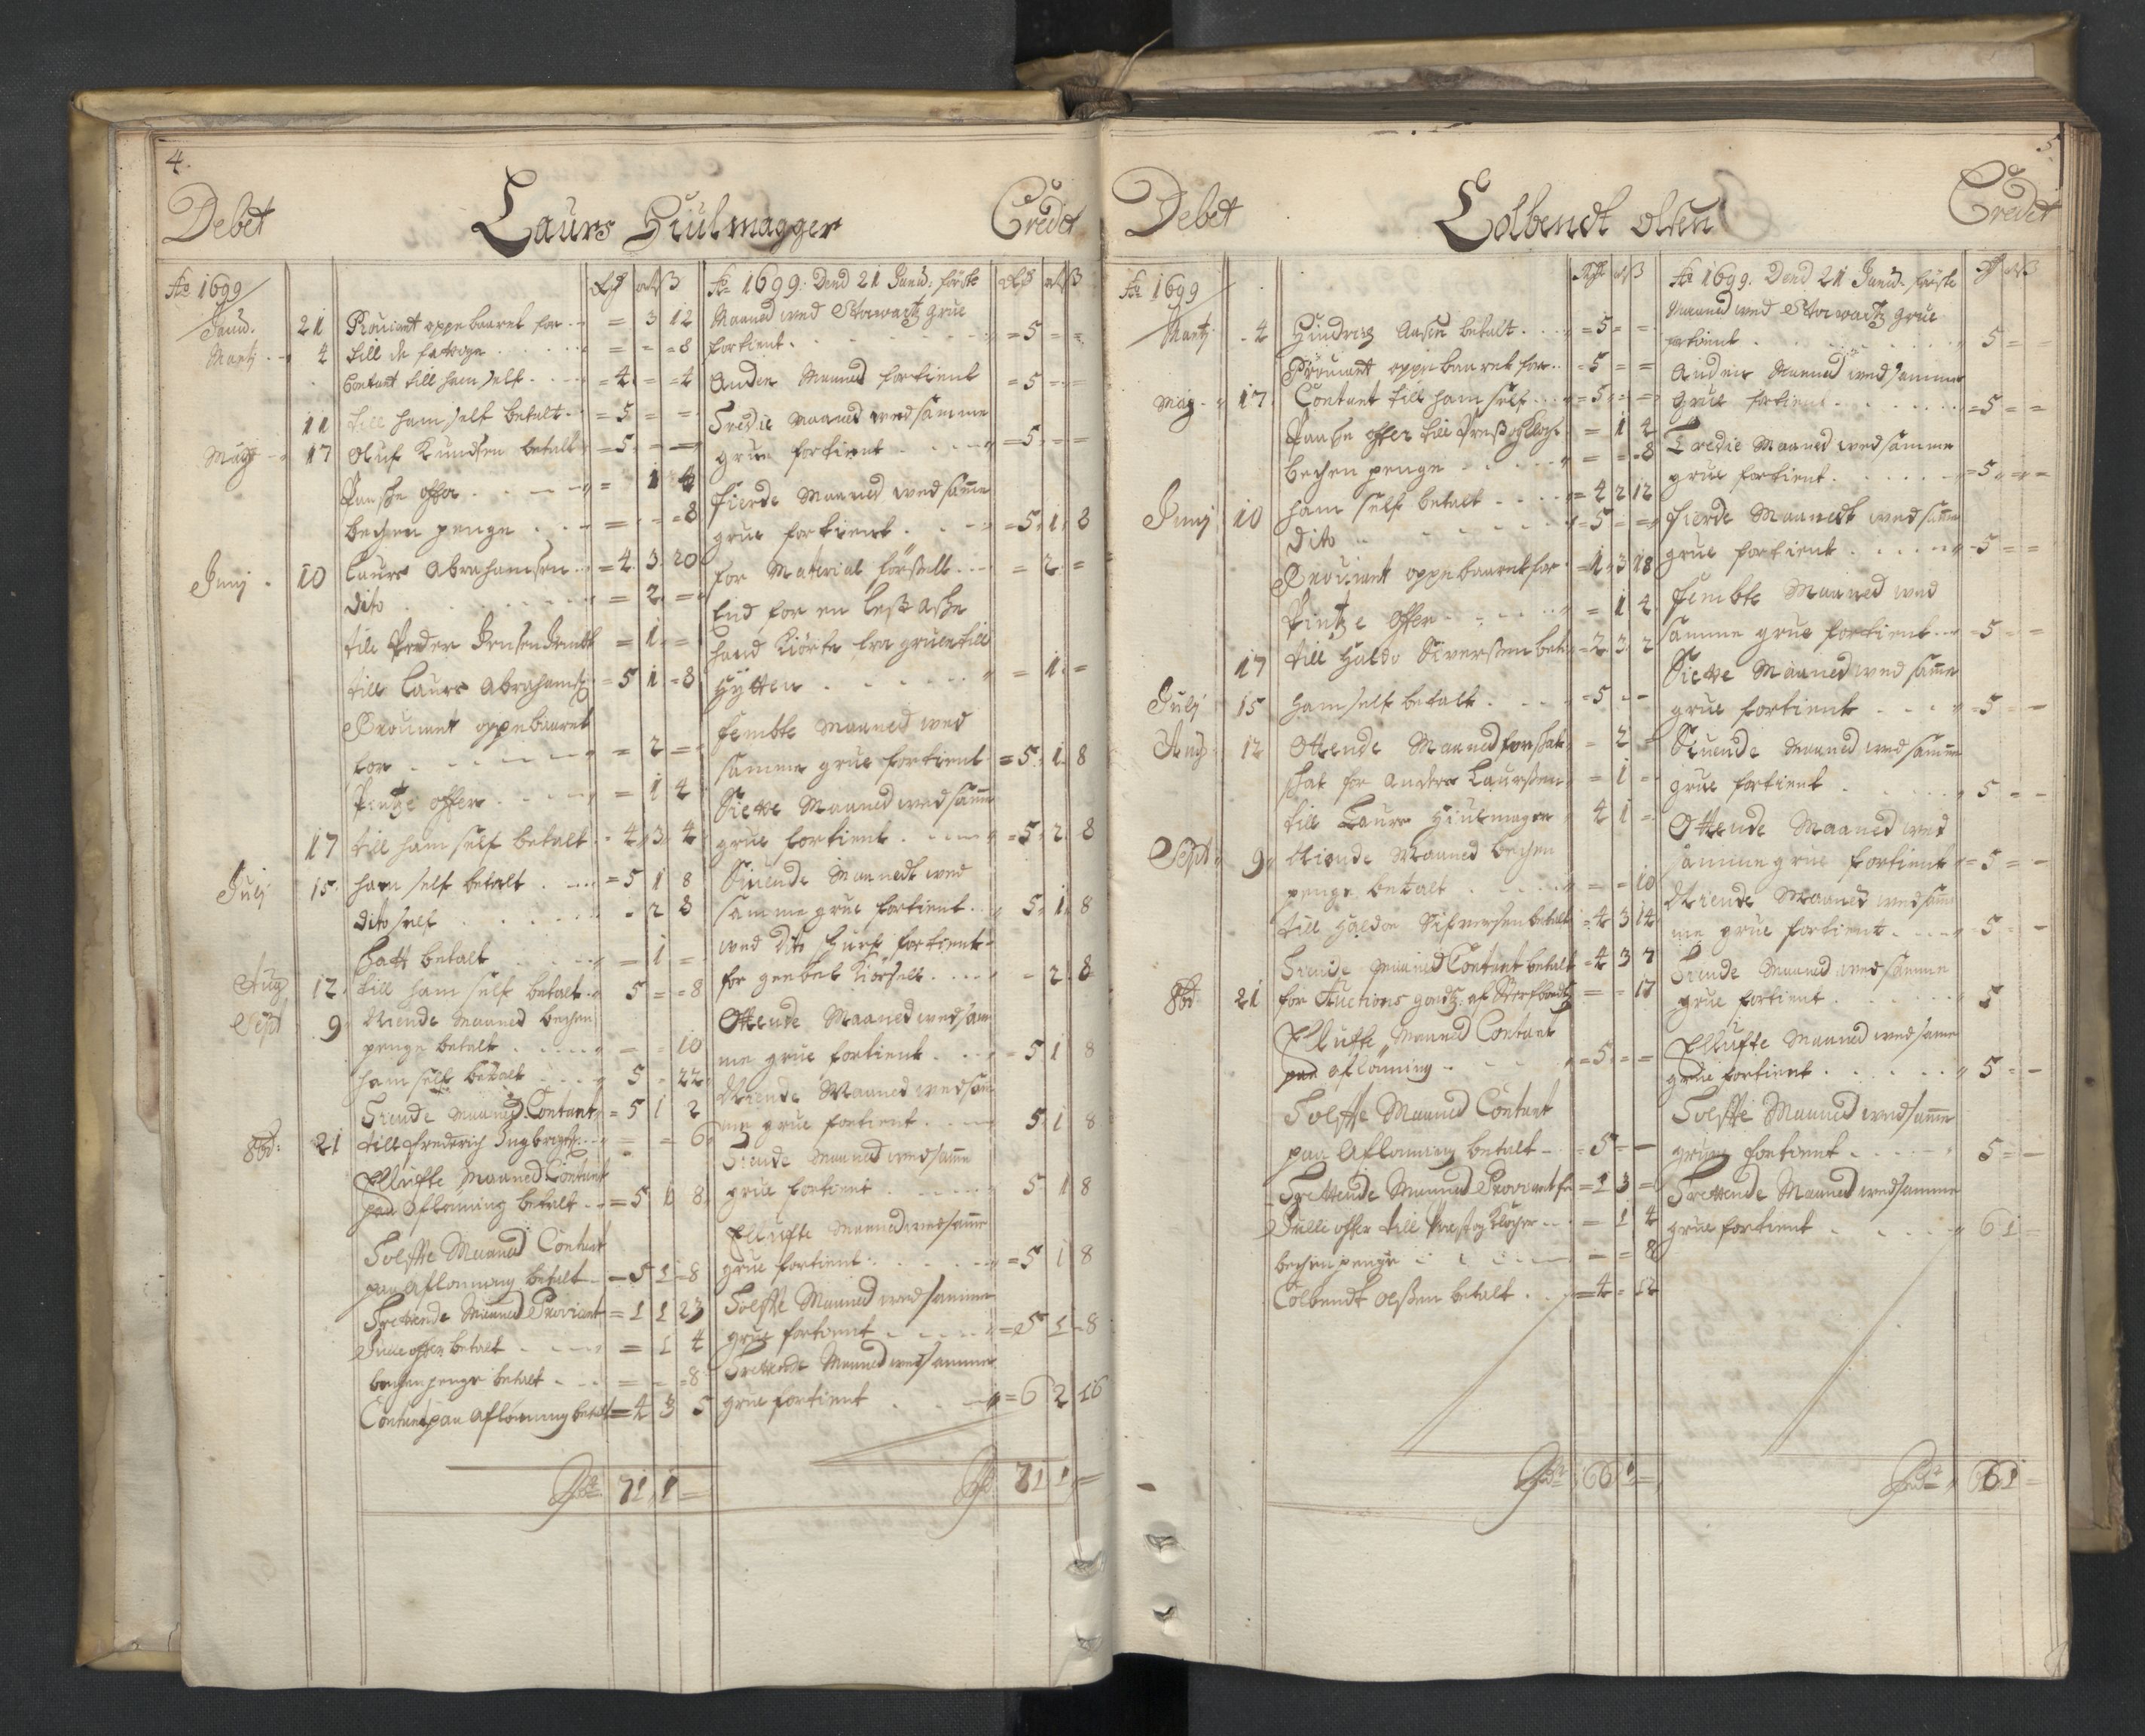 4.
Debet Laurs Hiulmagger Credit
Ao 1699
Janu. 21 Prouiant oppebaaret for = 3 12
Martj 4 till de fattige = = 8
Contant till ham self = 4 = = 4
11 till ham self betalt = 5 = =
Maij 17 Oluf Kundsen betalt = 5 = =
Paaske offer = 1 4
bechen penge = = 8
Junj 10 Laurs Abrahamsen = 4 3 20
dito = 2 =
till Peder Jensen = 1 =
till Laurs Abrahams = 5 1 = 8
Prouiant oppebaaret
for = 2 =
Pintze offer = 1 4
17 till ham self betalt = 4 3 4
Julj 15 ham self betalt = 5 1 8
dito self = 2 8
Skatt betalt = 1 =
Aug 12 till ham self betalt 5 = = 8
Sept 9 Niende Maaned bechen
penge betalt = = 10
ham self betalt 5 = 22
Tiende Maaned Contant = 5 1 2
8br: 21 till frederich Ingbrigts = = 6
Ellufte Maaned Contant
paa Aflønning betalt = 5 1 8
Tolfte Maaned Contant
paa Aflønning betalt = 5 1 = 8
Trettende Maaned Proviant = 1 1 23
Juule offer betalt = 1 4
bechenpenge betalt = = 8
Contant paa Aflønning betalt = 4 3 5
71 1 =
Ao 1699: Dend 21 Janu: første
Maaned wed Storwartz grue
fortient = 5 = =
Anden Maaned fortient = 5 = =
Tredie Maaned wed samme
grue fortient = 5 = =
fierde Maaned wed samme
grue fortient = 5 1 8
for Material førsell = 2 =
End for en lest
hand kiørte fra gruen till
Hytten = 1 =
fembte Maaned wed
samme grue fortient = 5 1 8
Siette Maaned wed samme
grue fortient = 5 2 8
Siuende Maanedt wed
samme grue fortient 5 1 8
wed dito skurf fortient
for kiørsell = 2 8
Ottende Maaned wed sam
me grue fortient = 5 1 8
Niende Maaned wed sam
me grue fortient 5 1 8
Tiende Maaned wed samme
grue fortient 5 1 8
Ellufte Maaned wed samme
grue fortient = 5 1 8
Tolfte Maaned wed samme
grue fortient = 5 1 = 8
Trettende Maaned wed samme
grue fortient = 6 2 16
71 1 =
5.
Debet Colbendt olsen Credit
Ao 1699
Martj 4 Hindrich Aasen betalt = 5 = =
Prouiant oppebaaret for = 5 = =
Maij 17 Contant till ham self = 5 = =
Paaske offer till Prest och Kloche = 1 4
bechen penge = = 8
Junj 10 ham self betalt = 4 2 12
dito = 5 = =
Prouiant oppebaaret for = 1 3 18
Pintze offer = 1 4
17 till Haldo Siverssen bet = 2 3 2
Julj 15 ham self betalt = 5 = =
Aug 12 Ottende Maaned forskat = 2 =
skat for Anders Laurssen = 1 =
till Laurs Hiulmager 4 1 =
Sept 9 Niende Maaned bechen
penge betalt = = 10
till Haldor Sifversen betalt = 4 3 14
Tiende Maaned Contant betalt = 4 3 7
8br 21 for Auctions godtz af Sterfboedtz = = 17
Ellufte Maaned Contant
paa Aflønning = 5 = =
Tolfte Maaned Contant
paa Aflønning betalt = 5 = =
Trettende Maaned Proviant for = 1 3 =
Juelle offer till Prest og Klocher = 1 4
bechenpenge = = 8
Colbendt olssen betalt = 4 = 12
66 1 =
Ao 1699. Dend 21 Janu. første
Maaned wed Storwartz grue
fortient 5 = =
Anden Maaned wed samme
grue fortient = 5 = =
Tredie Maaned wed samme
grue fortient = 5 = =
fierde Maanedt wed samme
grue fortient = 5 = =
fembte Maaned wed
samme grue fortient = 5 = =
Siette Maaned wed samme
grue fortient = 5 = =
Siuende Maaned wed samme
grue fortient 5 = =
Ottende Maaned wed
samme grue fortient = 5 = =
Niende Maaned wed sam
me grue fortient 5 = =
Tiende Maaned wed samme
grue fortient 5
Ellufte Maaned wed same
grue fortient 5 = =
Tolfte Maaned wed samme
gruen fortient 5 = =
Trettende Maaned wed samme
grue fortient 6 1 =